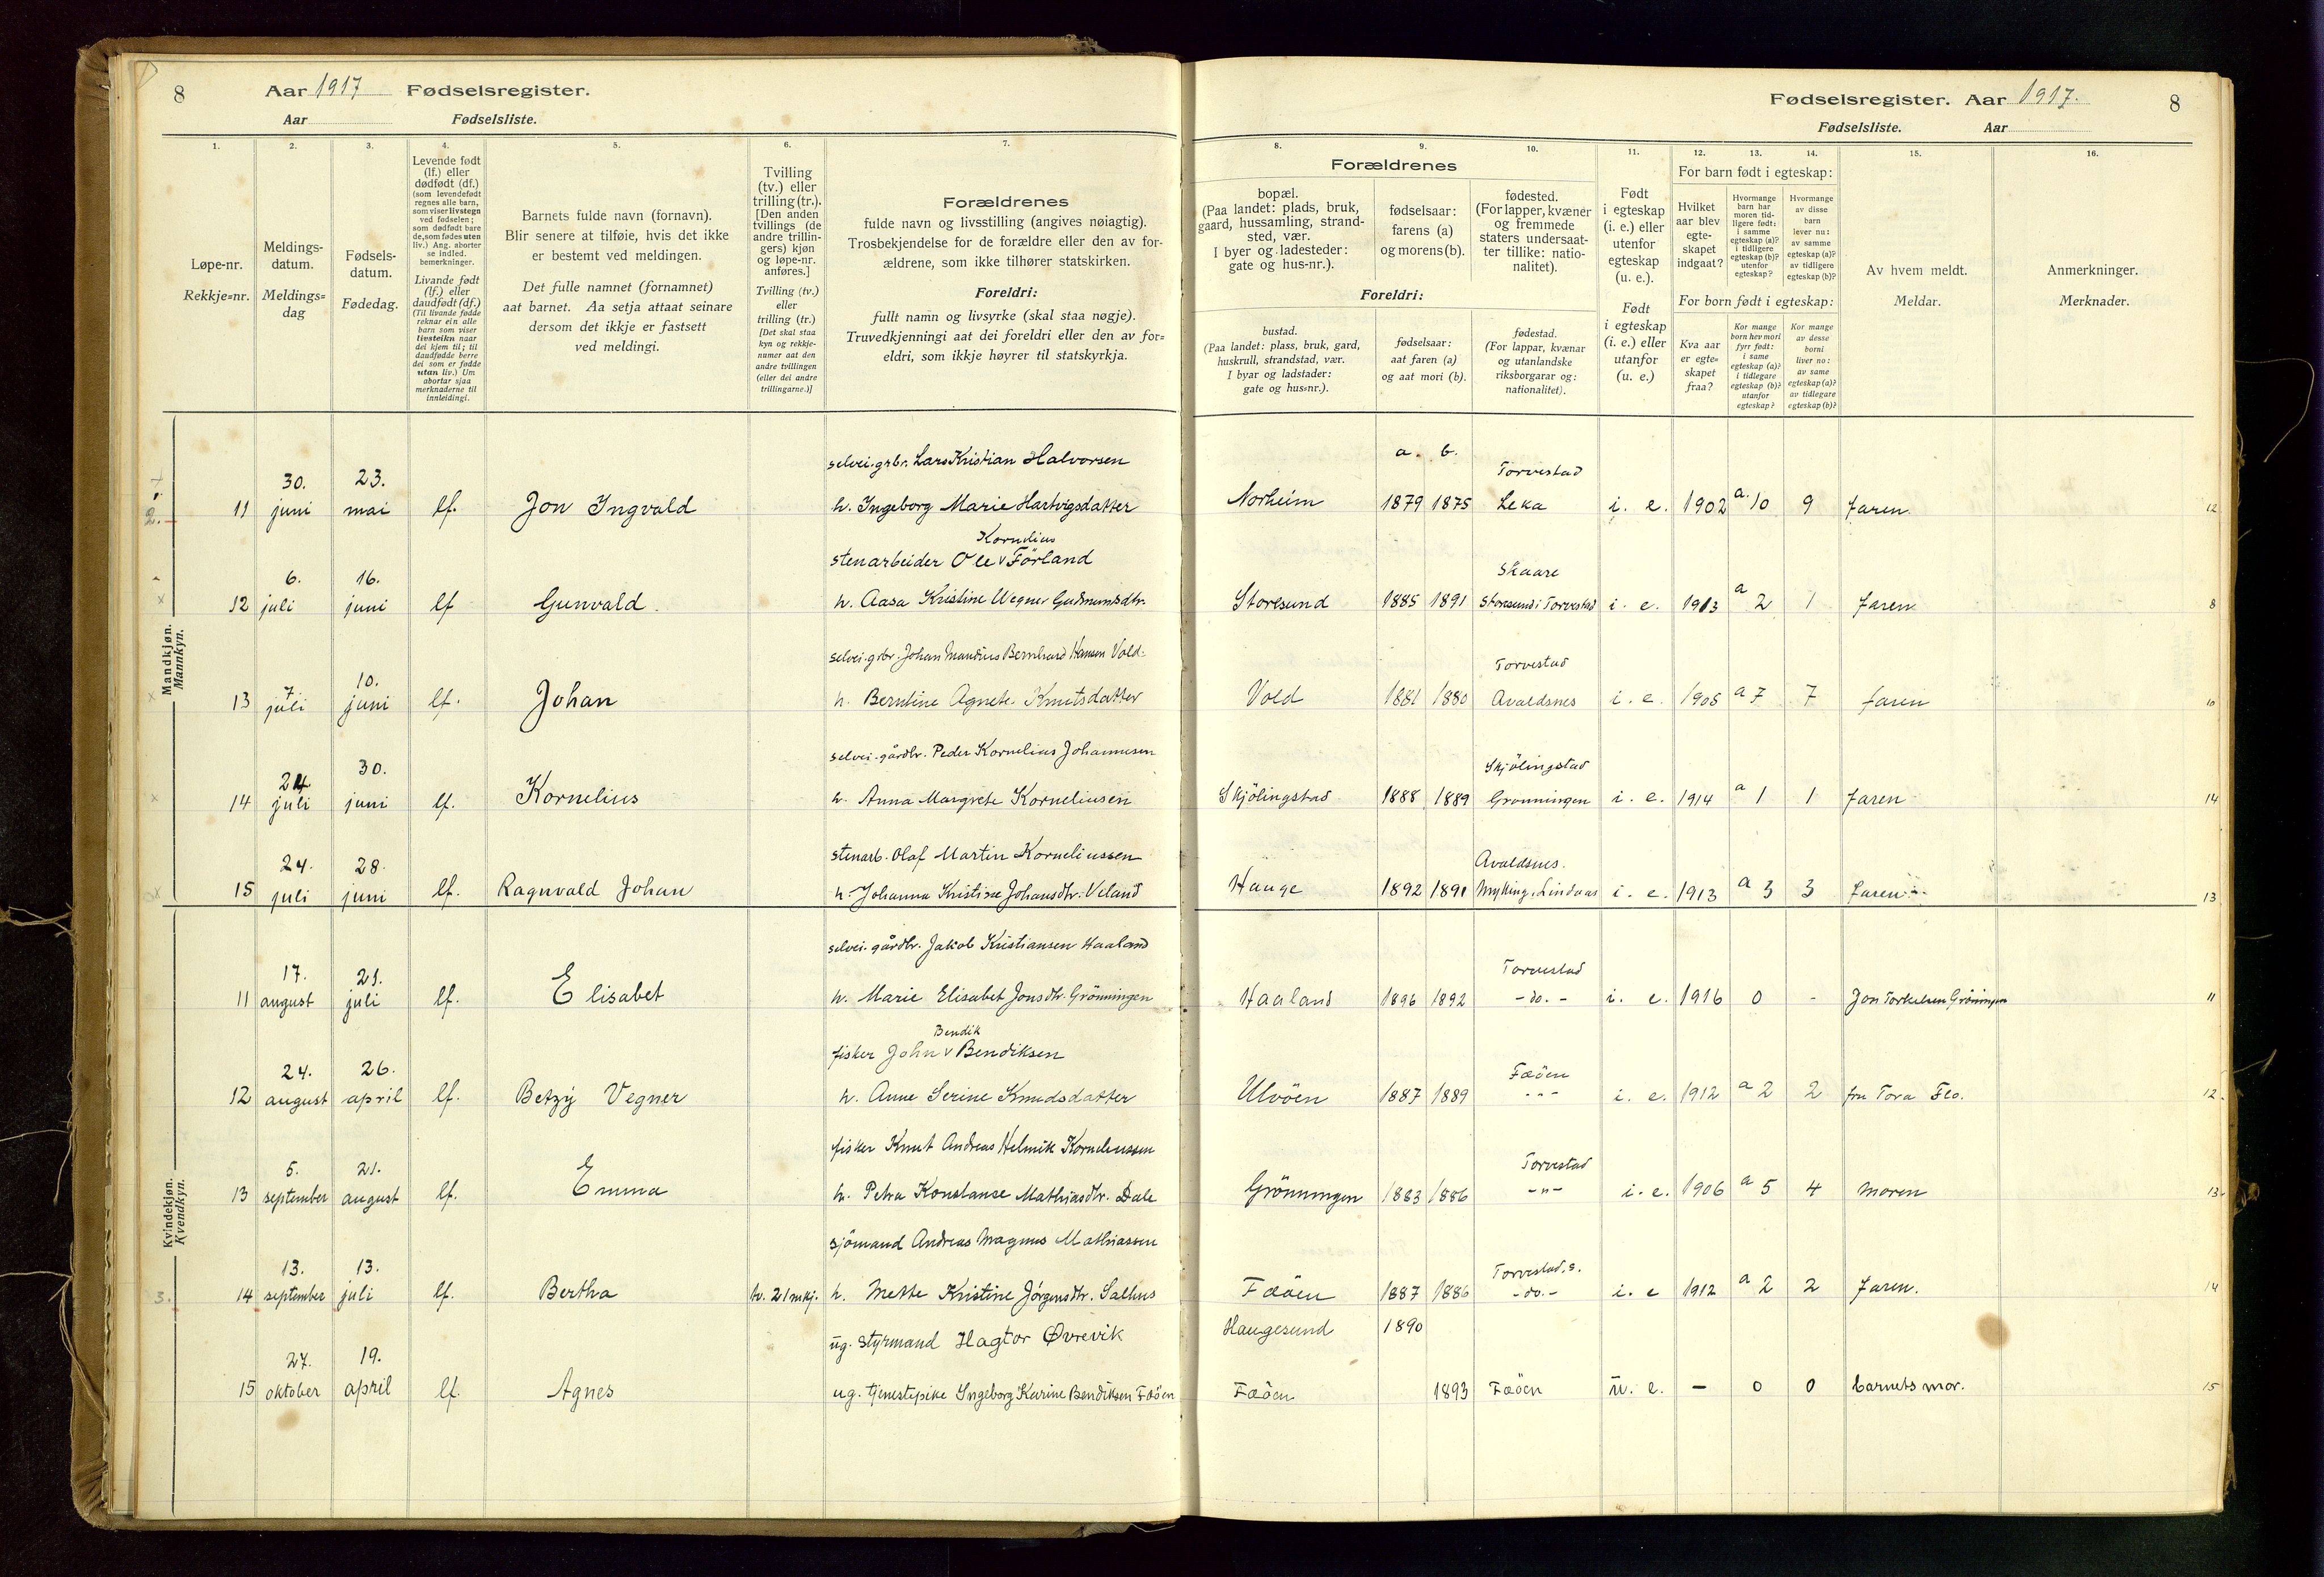 8 Aar 1917 Fødselsregister.
Aar Fødselsliste.
Fødselsregister. Aar 1917. 8
Fødselsliste. Aar
1. 2. 3. 4. 5. 6. 7. 8. 9. 10. 11. 12. 13. 14. 15. 16.
Løpe-nr.
Rekkje=nr.
Meldings-
datum.
Meldings=
dag
Fødsels-
datum.
Fødedag.
Levende født
(lf.) eller
dødfødt (df.)
(som levendefødt
regnes alle barn,
som viser livstegn
ved fødselen;
som dødfødt bare
de, som fødes uten
liv.) Ang. aborter
se indled.
bemerkninger.
Livande født
(lf.) eller
daudfødt (df.)
(Til livande fødde
reknar ein alle
barn som viser
livsteikn naar
dei kjem til; til
daudfødde berre
dei som er fødde
utan liv.) Um
abortar sjaa
merknaderne til
innleidingi.
Barnets fulde navn (fornavn).
Blir senere at tilføie, hvis det ikke
er bestemt ved meldingen.
Det fulle namnet (fornamnet)
aat barnet. Aa setja attaat seinare
dersom det ikkje er fastsett
ved meldingi.
Tvilling
(tv.) eller
trilling (tr.).
[Den anden
tvillings (de
andre trillin-
gers) kjøn
og løpe-nr.
anføres.]
Tvilling (tv.)
eller
trilling (tr.)
[Det skal staa
kyn og rekkje-
numer aat den
andre tvillingen
(eller dei andre
trillingarne.)]
Forældrenes
fulde navn og livsstilling (angives nøiagtig).
Trosbekjendelse for de forældre eller den av for-
ældrene, som ikke tilhører statskirken.
Foreldri:
fullt namn og livsyrke (skal staa nøgje).
Truvedkjenningi aat dei foreldri eller den av for=
eldri, som ikkje høyrer til statskyrkja.
Forældrenes
bopæl.
(Paa landet: plads, bruk,
gaard, hussamling, strand-
sted, vær.
I byer og ladesteder:
gate og hus-nr.).
fødselsaar:
farens (a)
og morens (b).
fødested.
(For lapper, kvæner
og fremmede
staters undersaat-
ter tillike: natio-
nalitet).
Foreldri:
bustad.
(Paa landet: plass, bruk, gard,
huskrull, strandstad, vær.
I byar og ladstader:
gate og hus=nr.).
fødselsaar:
aat faren (a)
og aat mori (b).
fødestad.
(For lappar, kvænar
og utanlandske
riksborgarar og:
nationalitet).
Født
i egteskap
(i. e.) eller
utenfor
egteskap
(u. e.).
Født
i egteskap
(i. e.) eller
utanfor
(u. e.)
For barn født i egteskap:
Hvilket
aar blev
egte-
skapet
indgaat?
Hvormange
barn har
moren tid-
ligere født:
i samme
egteskap (a)?
i tidligere
egteskap (b)?
utenfor
egteskap?
Hvormange
av disse
barn
lever nu:
av samme
egteskap (a)?
av tidligere
egteskap (b)?
For born født i egteskap:
Kva aar
er egte=
skapet
fraa?
Kor mange
born hev mori
fyrr født:
i same
egteskap (a)?
i tidlegare
egteskap (b)?
utanfor
egteskap?
Kor mange
av desse
borni
liver no:
av same
egteskap (a)?
av tidlegare
egteskap (b)?
Av hvem meldt.
Meldar.
Anmerkninger.
Merknader.
Mandkjøn.
Mannkyn.
selvei. grbr. Lars Kristian Halvorsen
a. b.
30. 23. Torvestad
2. 11 juni mai lf. Jon Ingvald h. Ingeborg Marie Hartvigsdatter Norheim 1879 1875 Leka i. e. 1902 a. 10 9 faren. 12
Kornelius
stenarbeider Ole v Förland
6. 16. Skaare
12 juli juni lf Gunvald. h. Aasa Kristine Wegner Gudmundsdtr. Storesund 1885 1891 Storesund i Torvestad i. e. 1913 a 2 1 faren 8
selvei. grbr. Johan Mandius Bernhard Hansen Vold.
7 10. Torvestad
13 juli juni lf. Johan h. Berntine Agnete Knutsdatter Vold 1881 1880 Avaldsnes i. e. 1905 a 7 7 faren 10
selvei. gårdbr. Peder Kornelius Johannesen
24 30. Skjölingstad
14 juli juni lf. Kornelius h. Anna Margrete Korneliusen Skjölingstad 1888 1889 Grönningen i. e. 1914 a 1 1 faren 14
stenarb. Olaf Martin Korneliussen
24. 28. Avaldsnes.
15 juli juni lf. Ragnvald Johan h. Johanna Kristine Johansdtr. Veland Hauge 1892 1891 Mykling, Lindaas i. e. 1913 a 3 3 faren 13
Kvindekjøn.
Kvendkyn.
selvei. gårdbr. Jakob Kristiansen Haaland
17. 21. Torvestad
11 august juli lf. Elisabet h. Marie Elisabet Jonsdtr. Grönningen Haaland 1896 1892 -do.- i. e. 1916 0 - Jon Torkelsen Grönningen 11
Bendik
fisker John v Bendiksen
24. 26. Fæöen
12 august april lf. Betzy Vegner h. Anne Serine Knudsdatter Ulvöen 1887 1889 - " - i. e. 1912 a 2 2 fru Tora Flo. 12.
fisker Knut Andreas Helmik Korneliussen
5. 21. Torvestad
13 september august lf. Emma h. Petra Konstanse Mathiasdtr. Dale Grönningen 1883 1886 -"- i. e. 1906 a 5 4 moren 13
sjömand Andreas Magnus Mathiassen
13. 13. Torvestad, s.
3. 14 september juli lf. Bertha tv. 21 mkj. h. Mette Kristine Jörgensdtr. Salhus Fæöen 1887 1886 -do.- i. e 1912 a 2 2 faren. 14
ug. styrmand Hagtor Øvrevik Haugesund 1890
27. 19.
15 oktober april lf. Agnes ug. tjenestepike Ingeborg Karine Bendiksen Fæöen Fæöen 1893 Fæöen u. e. — 0 0 barnets mor. 15